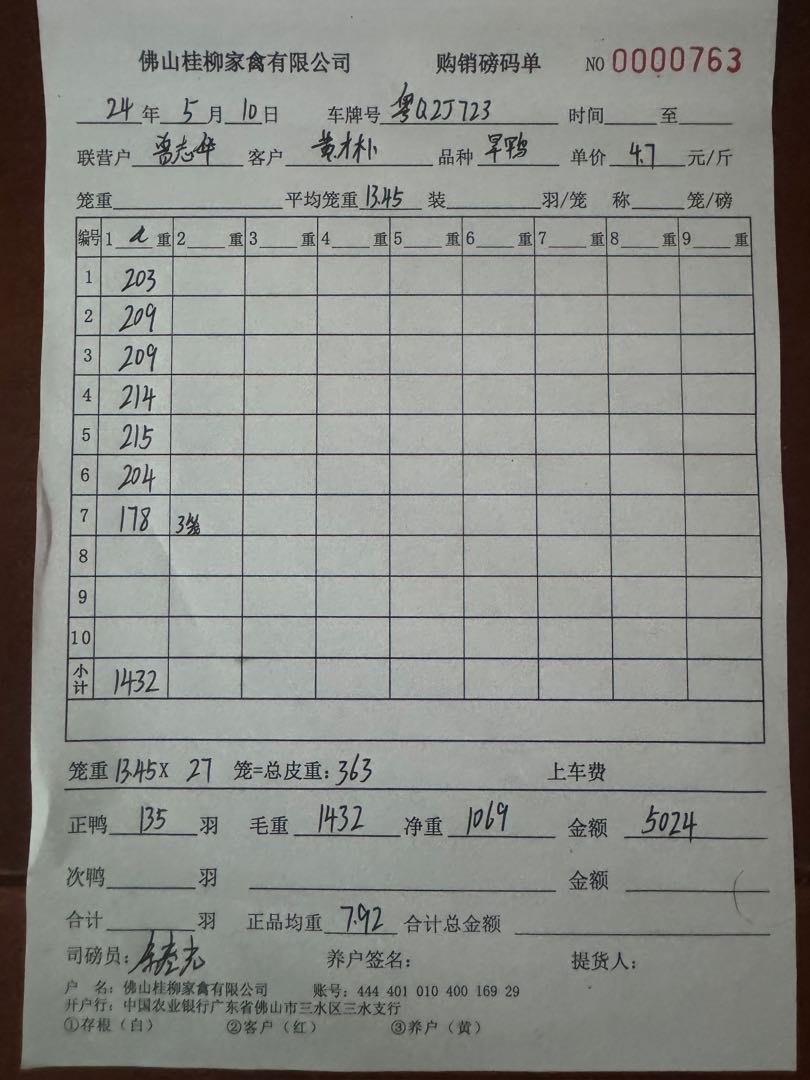 佛山桂柳家禽有限公司 购销磅码单 NO 0000763
24年5月10日 车牌号 粤Q2J723 时间 至
联营户 曾志华 客户 黄才朴 品种 旱鸭 单价 4.7 元/斤
笼重 平均笼重 13.45 装 羽/笼 称 笼/磅
编号 1 重 2 重 3 重 4 重 5 重 6 重 7 重 8 重 9 重
1 203
2 209
3 209
4 214
5 215
6 204
7 178 3笼
8
9
10
小计 1432
笼重 13.45X 27 笼=总皮重:363 上车费
正鸭 135 羽 毛重 1432 净重 1069 金额 5024
次鸭 羽 金额
合计 羽 正品均重 7.92 合计总金额
司磅员: 养户签名: 提货人:
户 名: 佛山桂柳家禽有限公司 账号: 444 401 010 400 169 29
开户行: 中国农业银行广东省佛山市三水区三水支行
①存根(白) ②客户(红) ③养户(黄)